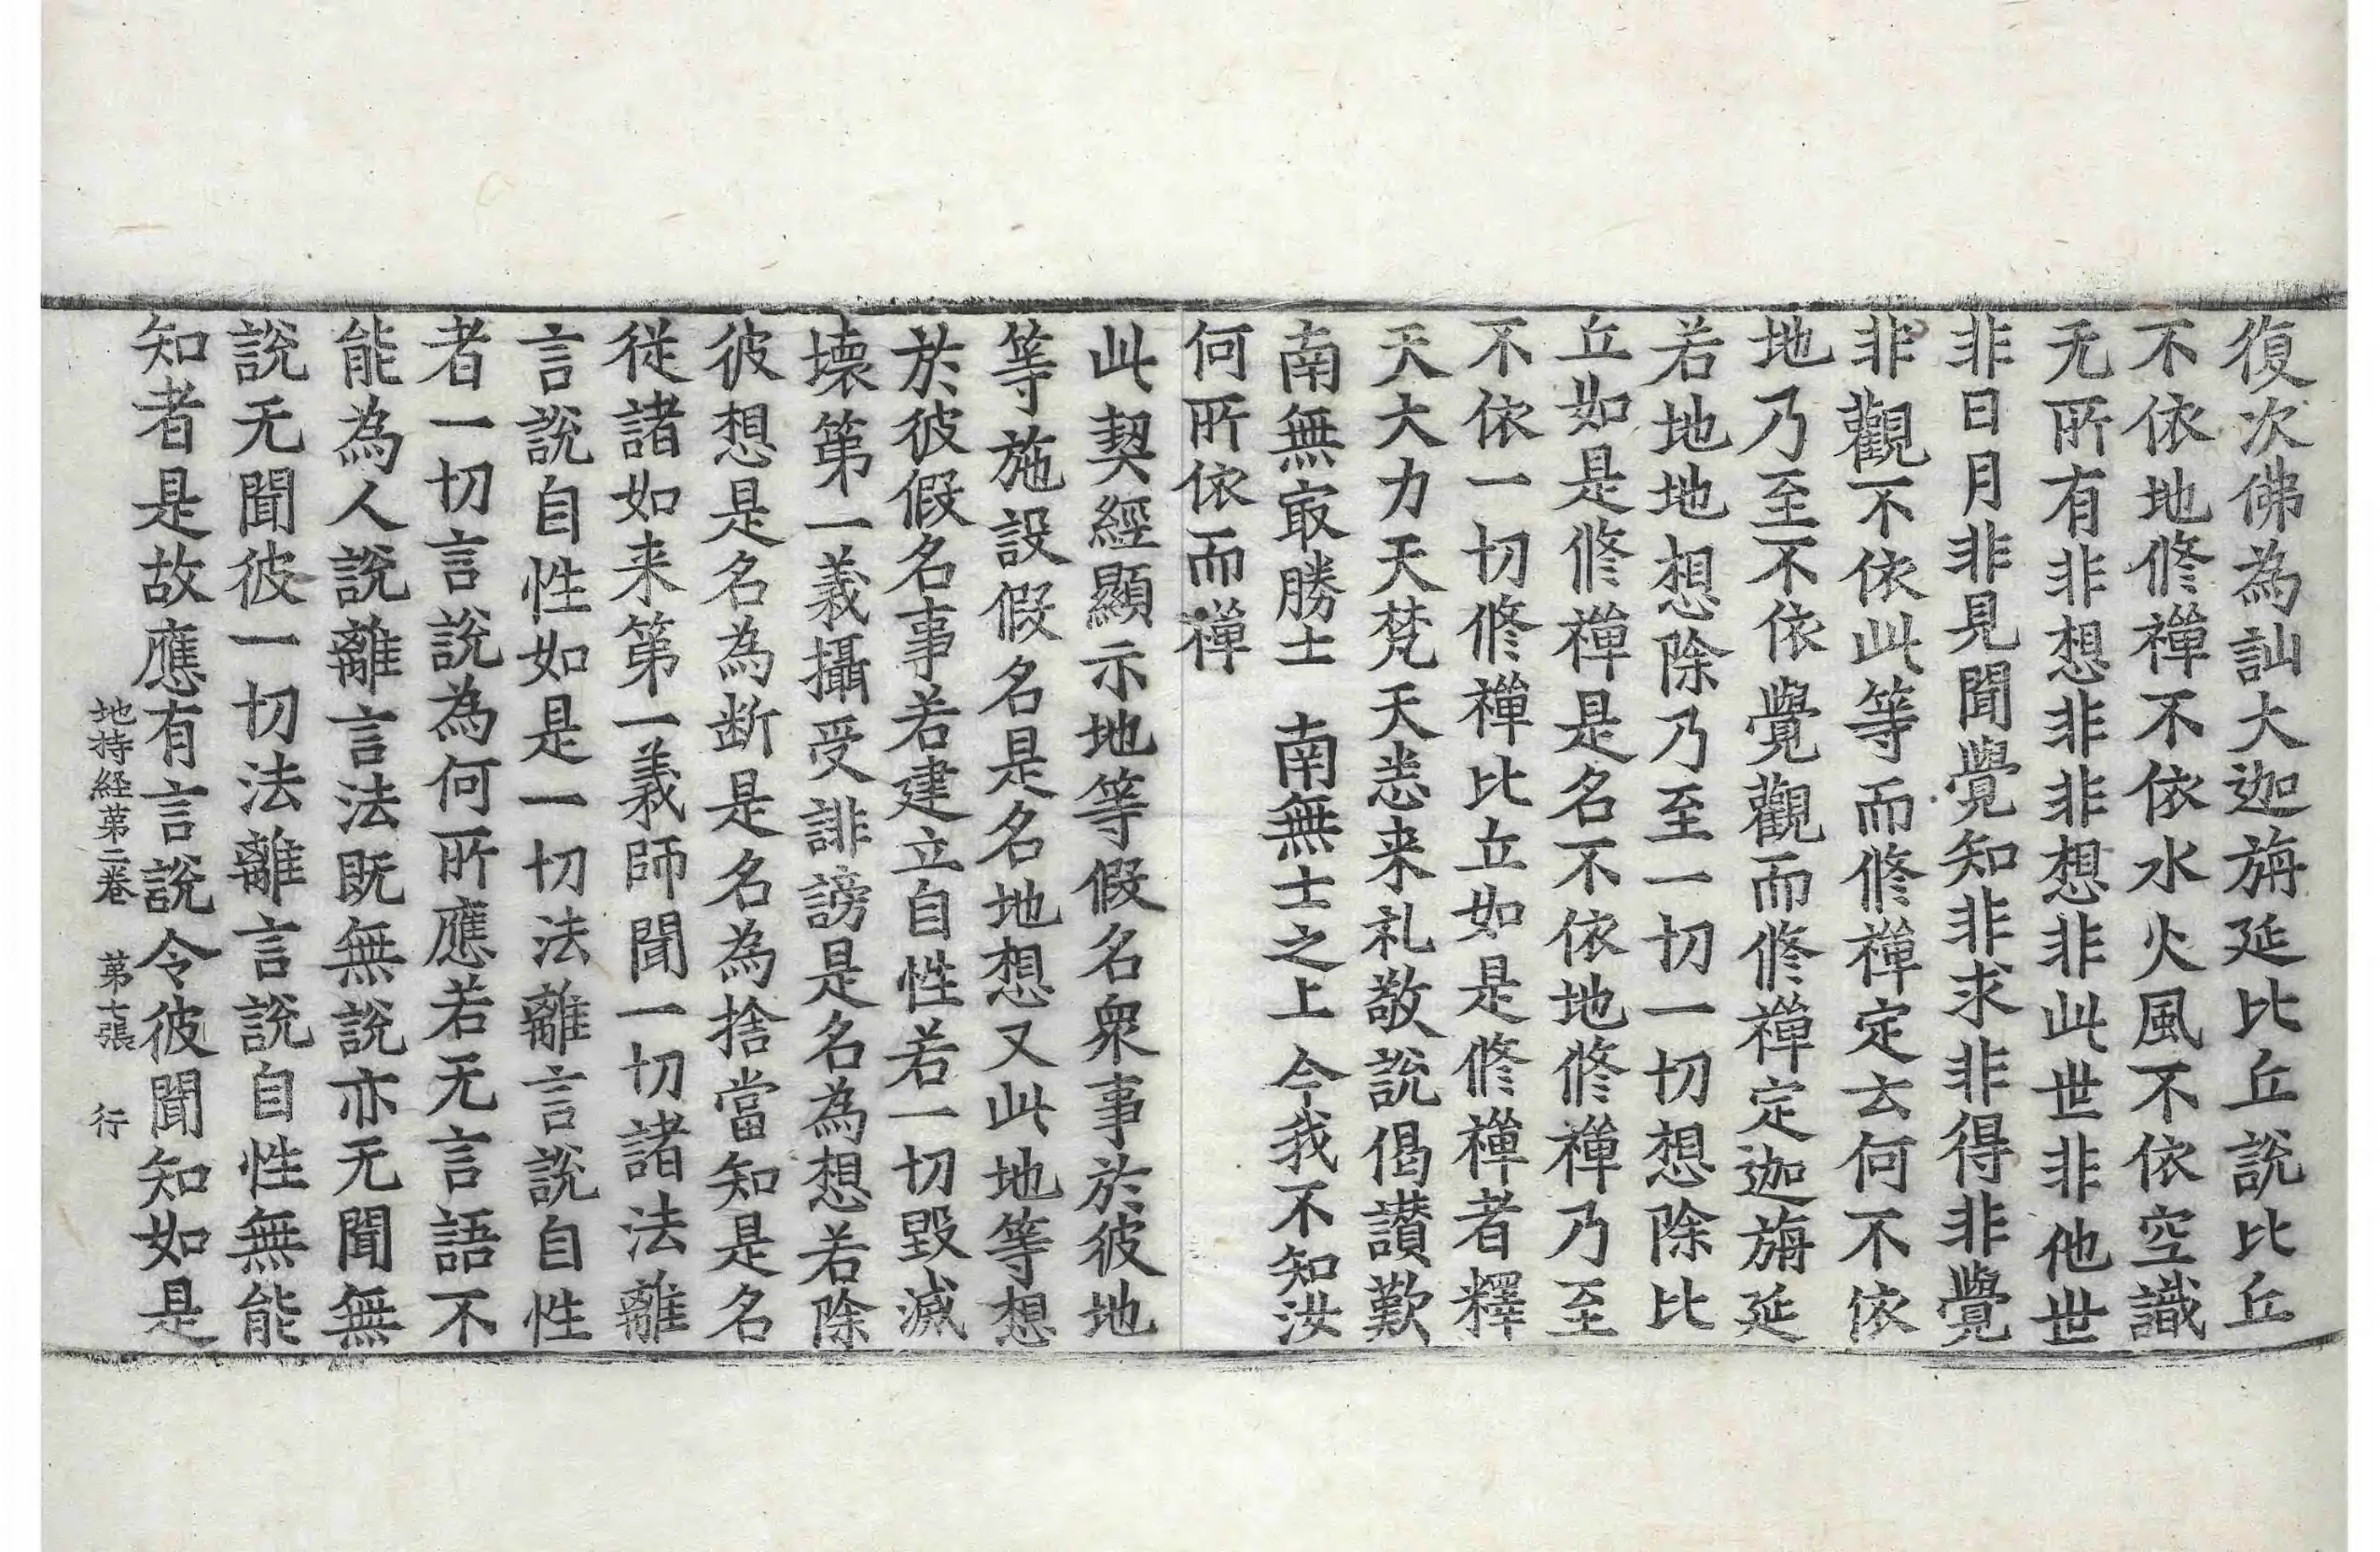 復次佛為訕大迦旃延比丘說比丘
不依地修禪不依水火風不依空識
无所有非想非非想非此世非他世
非日月非見聞覺知非求非得非覺
非觀不依此等而修禪定云何不依
地乃至不依覺觀而修禪定迦旃延
若地地想除乃至一切一切想除比
丘如是修禪是名不依地修禪乃至
不依一切修禪比丘如是修禪者釋
天大力天梵天悉来礼敬說偈讃歎
南無㝡勝士　南無士之上　今我不知汝
何所依而禪
此契經顯示地等假名衆事於彼地
等施設假名是名地想又此地等想
於彼假名事若建立自性若一切毀滅
壊第一義攝受誹謗是名為想若除
彼想是名為断是名為捨當知是名
従諸如来第一義師聞一切諸法離
言說自性如是一切法離言說自性
者一切言說為何所應若无言語不
能為人說離言法既無說亦无聞無
說无聞彼一切法離言說自性無能
知者是故應有言說令彼聞知如是
地持経苐二巻　苐七張　行